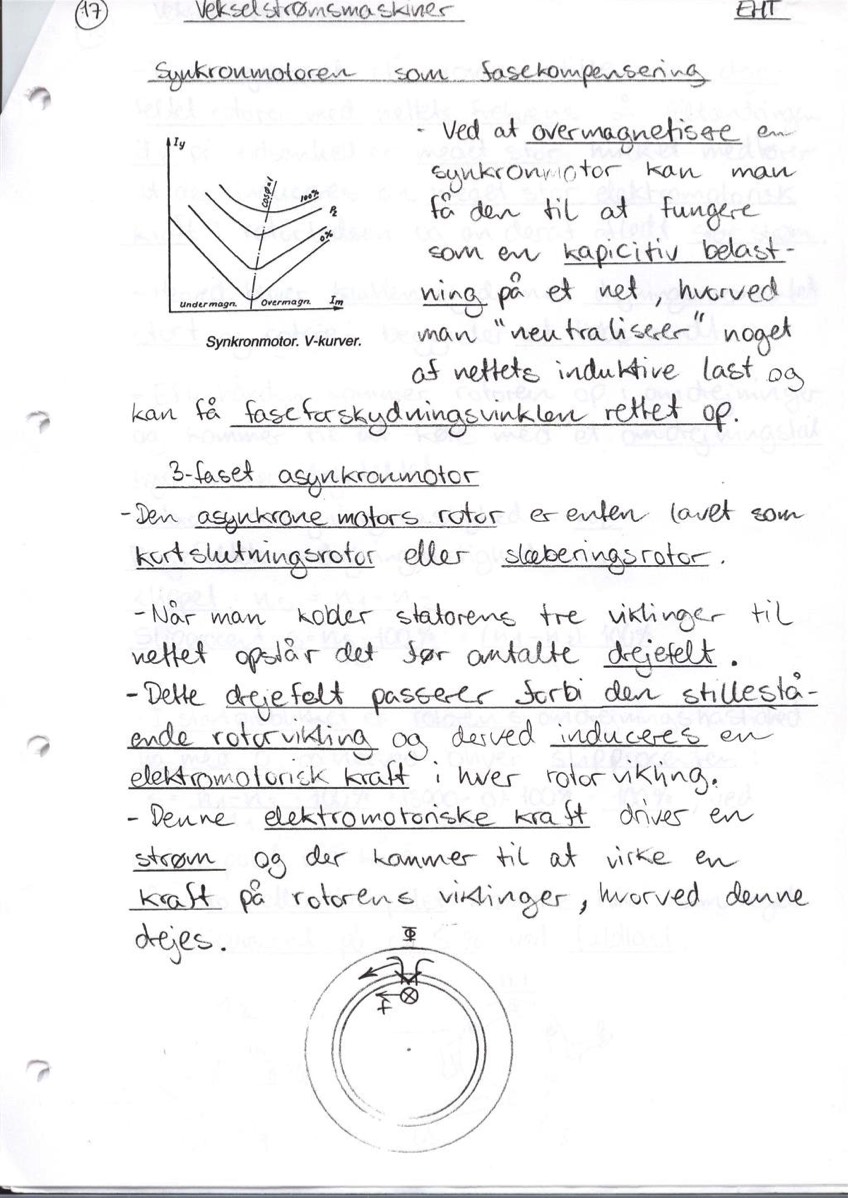 17 Vekselstrømsmaskiner EHT
Synkronmotoren som fasekompensering
Iy
cosφ=1
100%
P2
0%
Undermagn. Overmagn. Im
Synkronmotor. V-kurver.
- Ved at overmagnetisere en
synkronmotor kan man
få den til at fungere
som en kapicitiv belast-
ning på et net, hvorved
man "neutraliserer" noget
af nettets induktive last og
kan få faseforskydningsvinklen rettet op.
3-faset asynkronmotor
- Den asynkrone motors rotor er enten lavet som
kortslutningsrotor eller slæberingsrotor.
- Når man kobler statorens tre viklinger til
nettet opstår det før omtalte drejefelt.
- Dette drejefelt passerer forbi den stillestå-
ende rotorvikling og derved induceres en
elektromotorisk kraft i hver rotorvikling.
- Denne elektromotoriske kraft driver en
strøm og der kommer til at virke en
kraft på rotorens viklinger, hvorved denne
drejes.
Φ
F